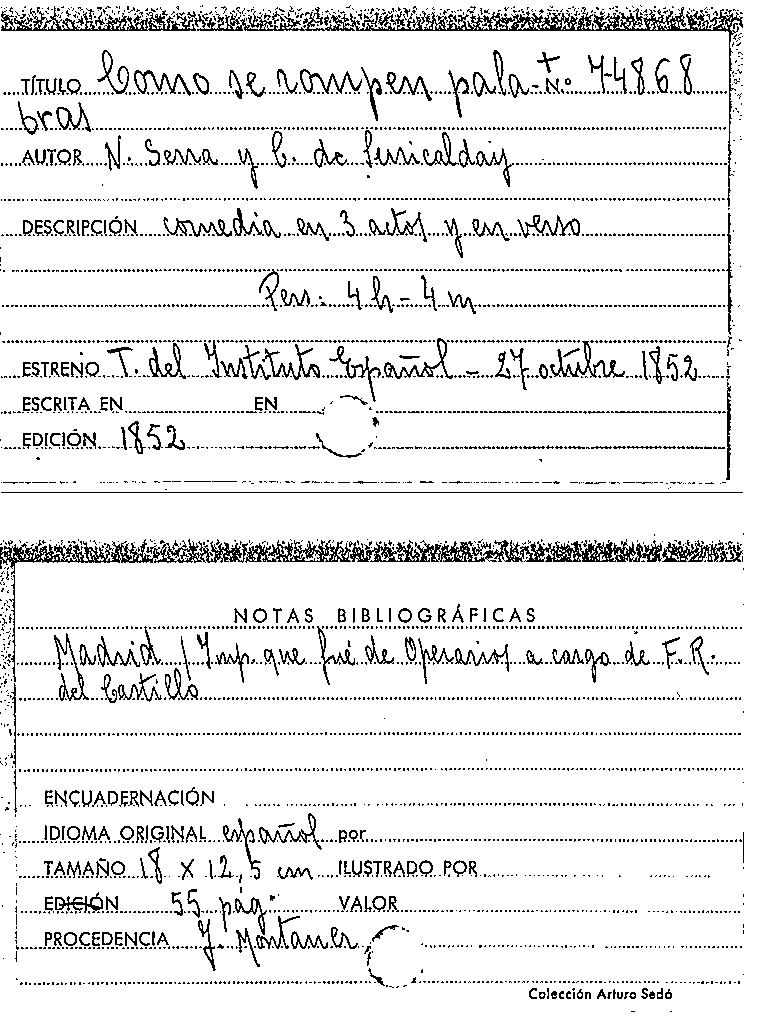 TÍTULO Como se rompen pala- + N.º 74868
bras
AUTOR N. Serra y C. de Suricalday
DESCRIPCIÓN comedia en 3 actos y en verso
Pers: 4 h - 4 m
ESTRENO T. del Instituto Español - 27 octubre 1852
ESCRITA EN EN
EDICIÓN 1852
NOTAS BIBLIOGRÁFICAS
Madrid / Imp. que fué de Operarios a cargo de F. R.
del Castillo
ENCUADERNACIÓN
IDIOMA ORIGINAL español por
TAMAÑO 18 x 12,5 cm ILUSTRADO POR
EDICIÓN 55 pág. VALOR
PROCEDENCIA J. Montaner
Colección Arturo Sedó